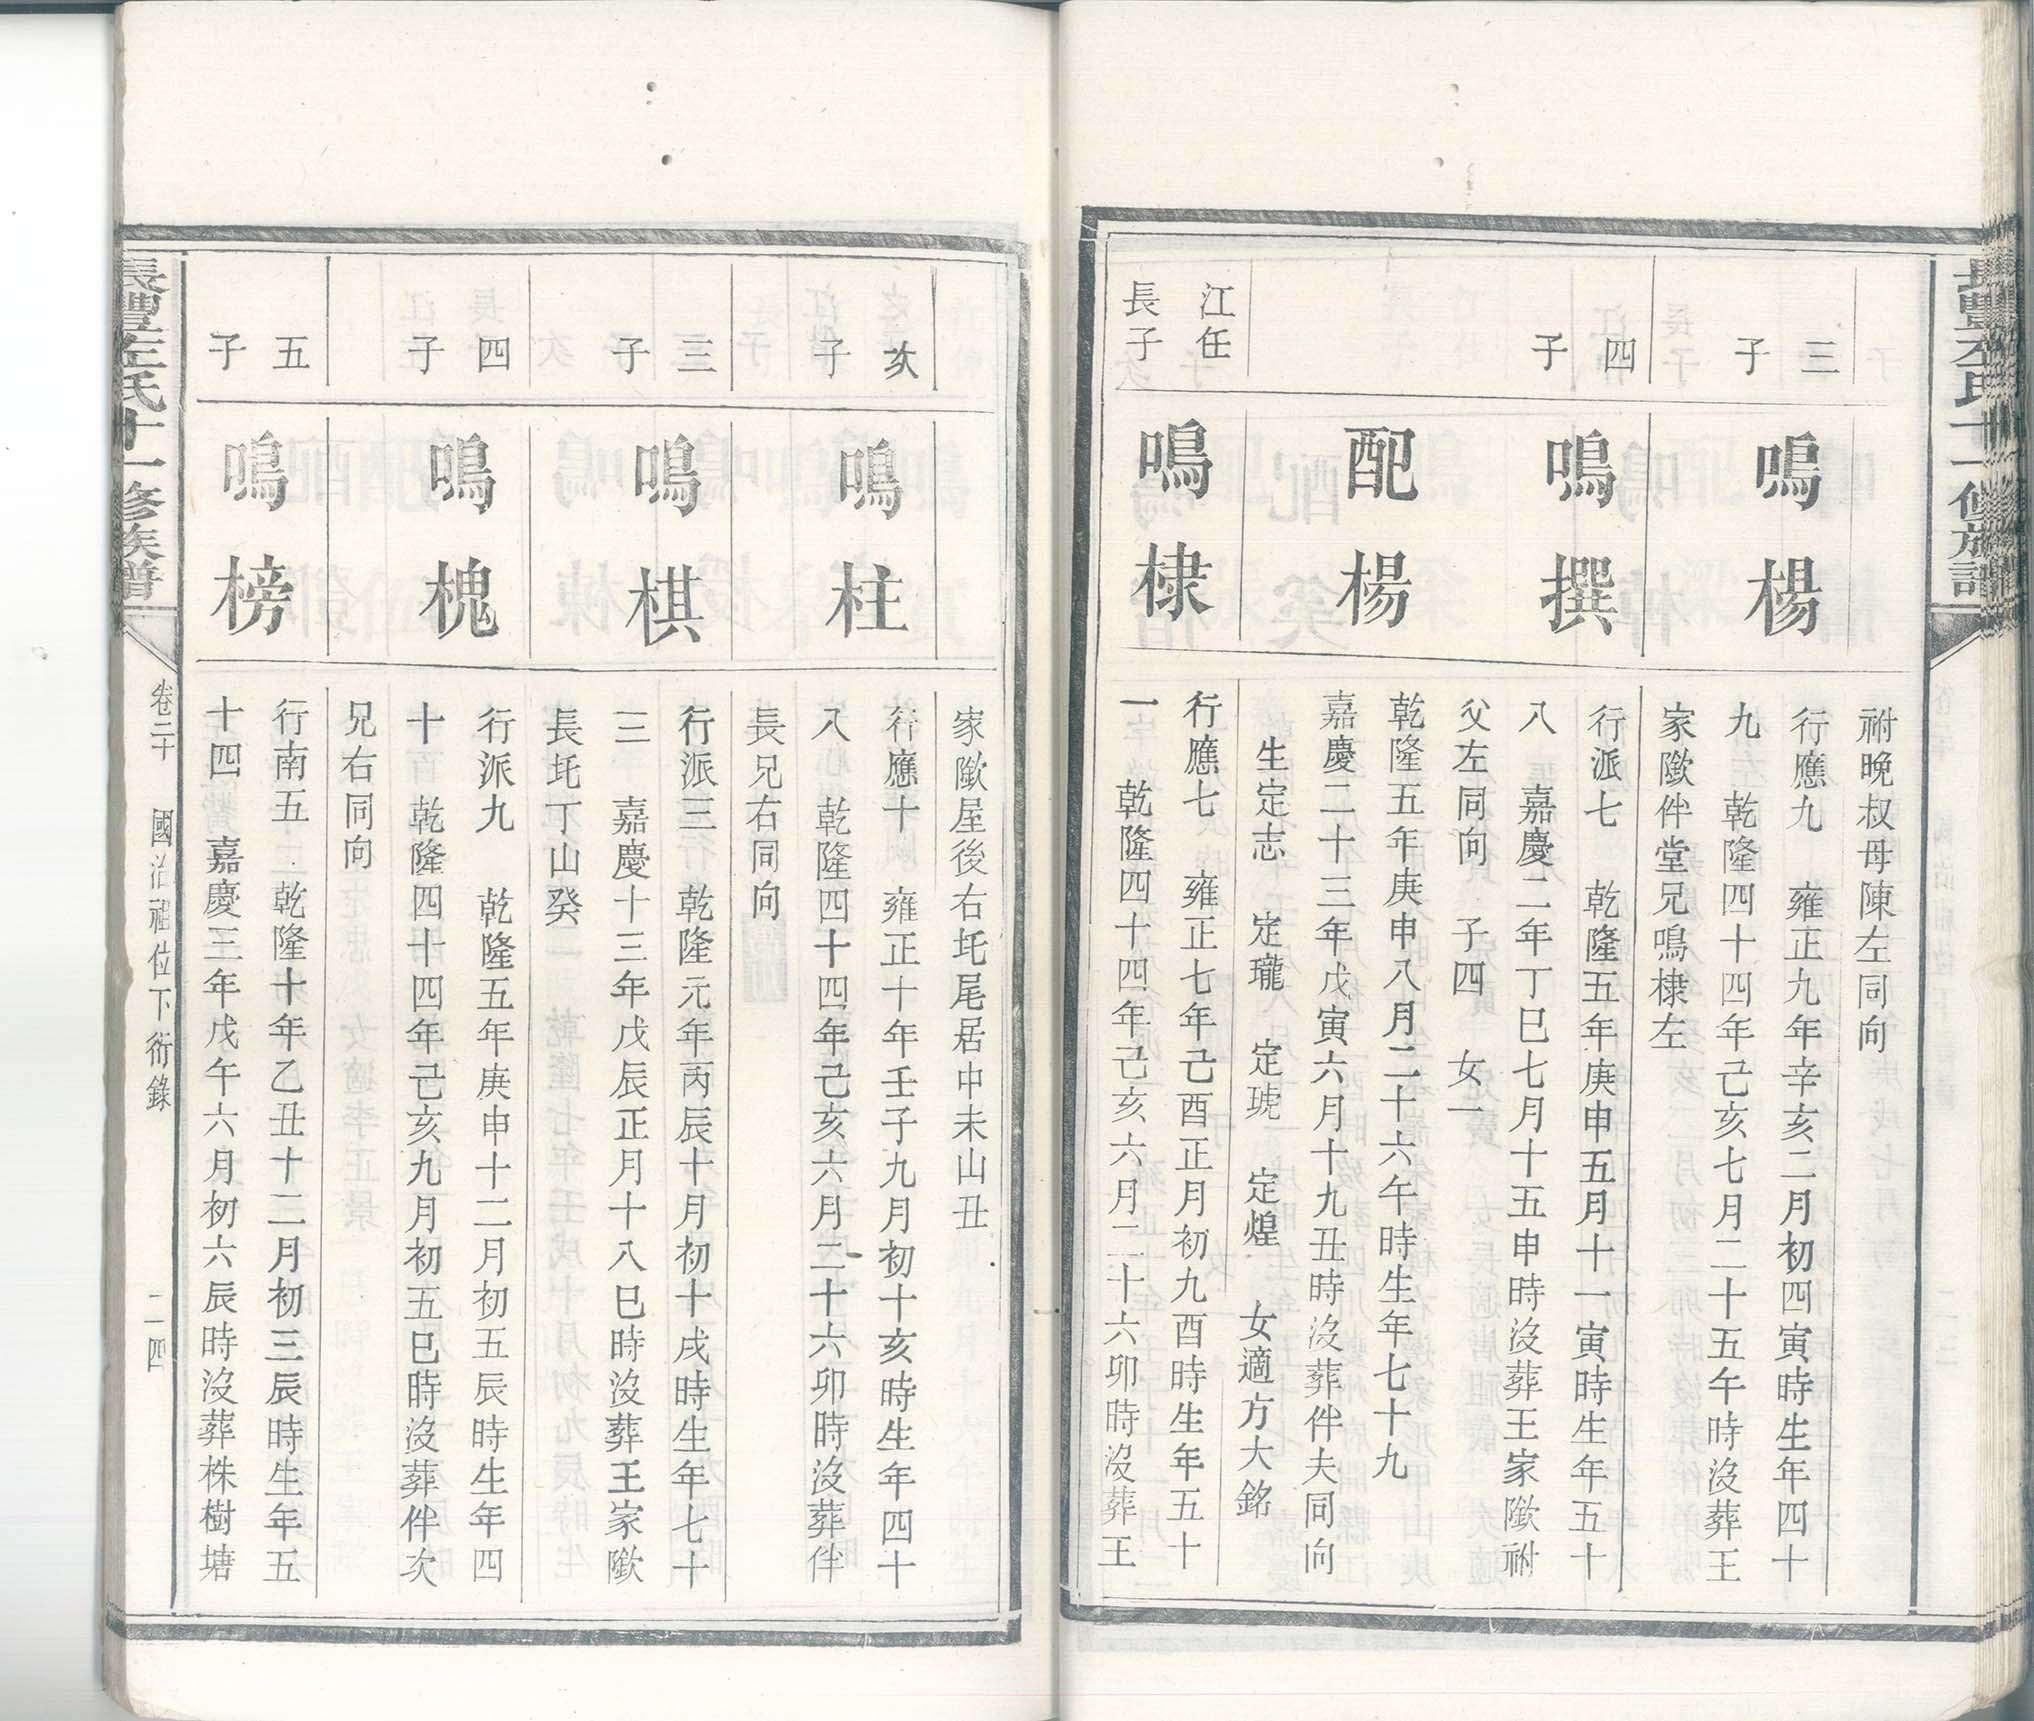 長豐左氏十一修族譜
祔晚叔母陳左同向
三子
鳴楊
行應九 雍正九年辛亥二月初四寅時生年四十
九 乾隆四十四年己亥七月二十五午時沒葬王
家歘伴堂兄鳴棣左
四子
鳴撰
行派七 乾隆五年庚申五月十一寅時生年五十
八 嘉慶二年丁巳七月十五申時沒葬王家歘祔
父左同向 子四 女一
配楊
乾隆五年庚申八月二十六午時生年七十九
嘉慶二十三年戊寅六月十九丑時沒葬伴夫同向
生定志 定瓏 定琥 定煌 女適方大銘
江任長子
鳴棣
行應七 雍正七年己酉正月初九酉時生年五十
一 乾隆四十四年己亥六月二十六卯時沒葬王
家歘屋後右圫尾居中未山丑
次子
鳴柱
行應十 雍正十年壬子九月初十亥時生年四十
八 乾隆四十四年己亥六月二十六卯時沒葬伴
長兄右同向
三子
鳴棋
行派三 乾隆元年丙辰十月初十戌時生年七十
三 嘉慶十三年戊辰正月十八巳時沒葬王家歘
長圫丁山癸
四子
鳴槐
行派九 乾隆五年庚申十二月初五辰時生年四
十 乾隆四十四年己亥九月初五巳時沒葬伴次
兄右同向
五子
鳴榜
行南五 乾隆十年乙丑十二月初三辰時生年五
十四 嘉慶三年戊午六月初六辰時沒葬株樹塘
長豐左氏十一修族譜
卷二十 國治祖位下衍錄 二四